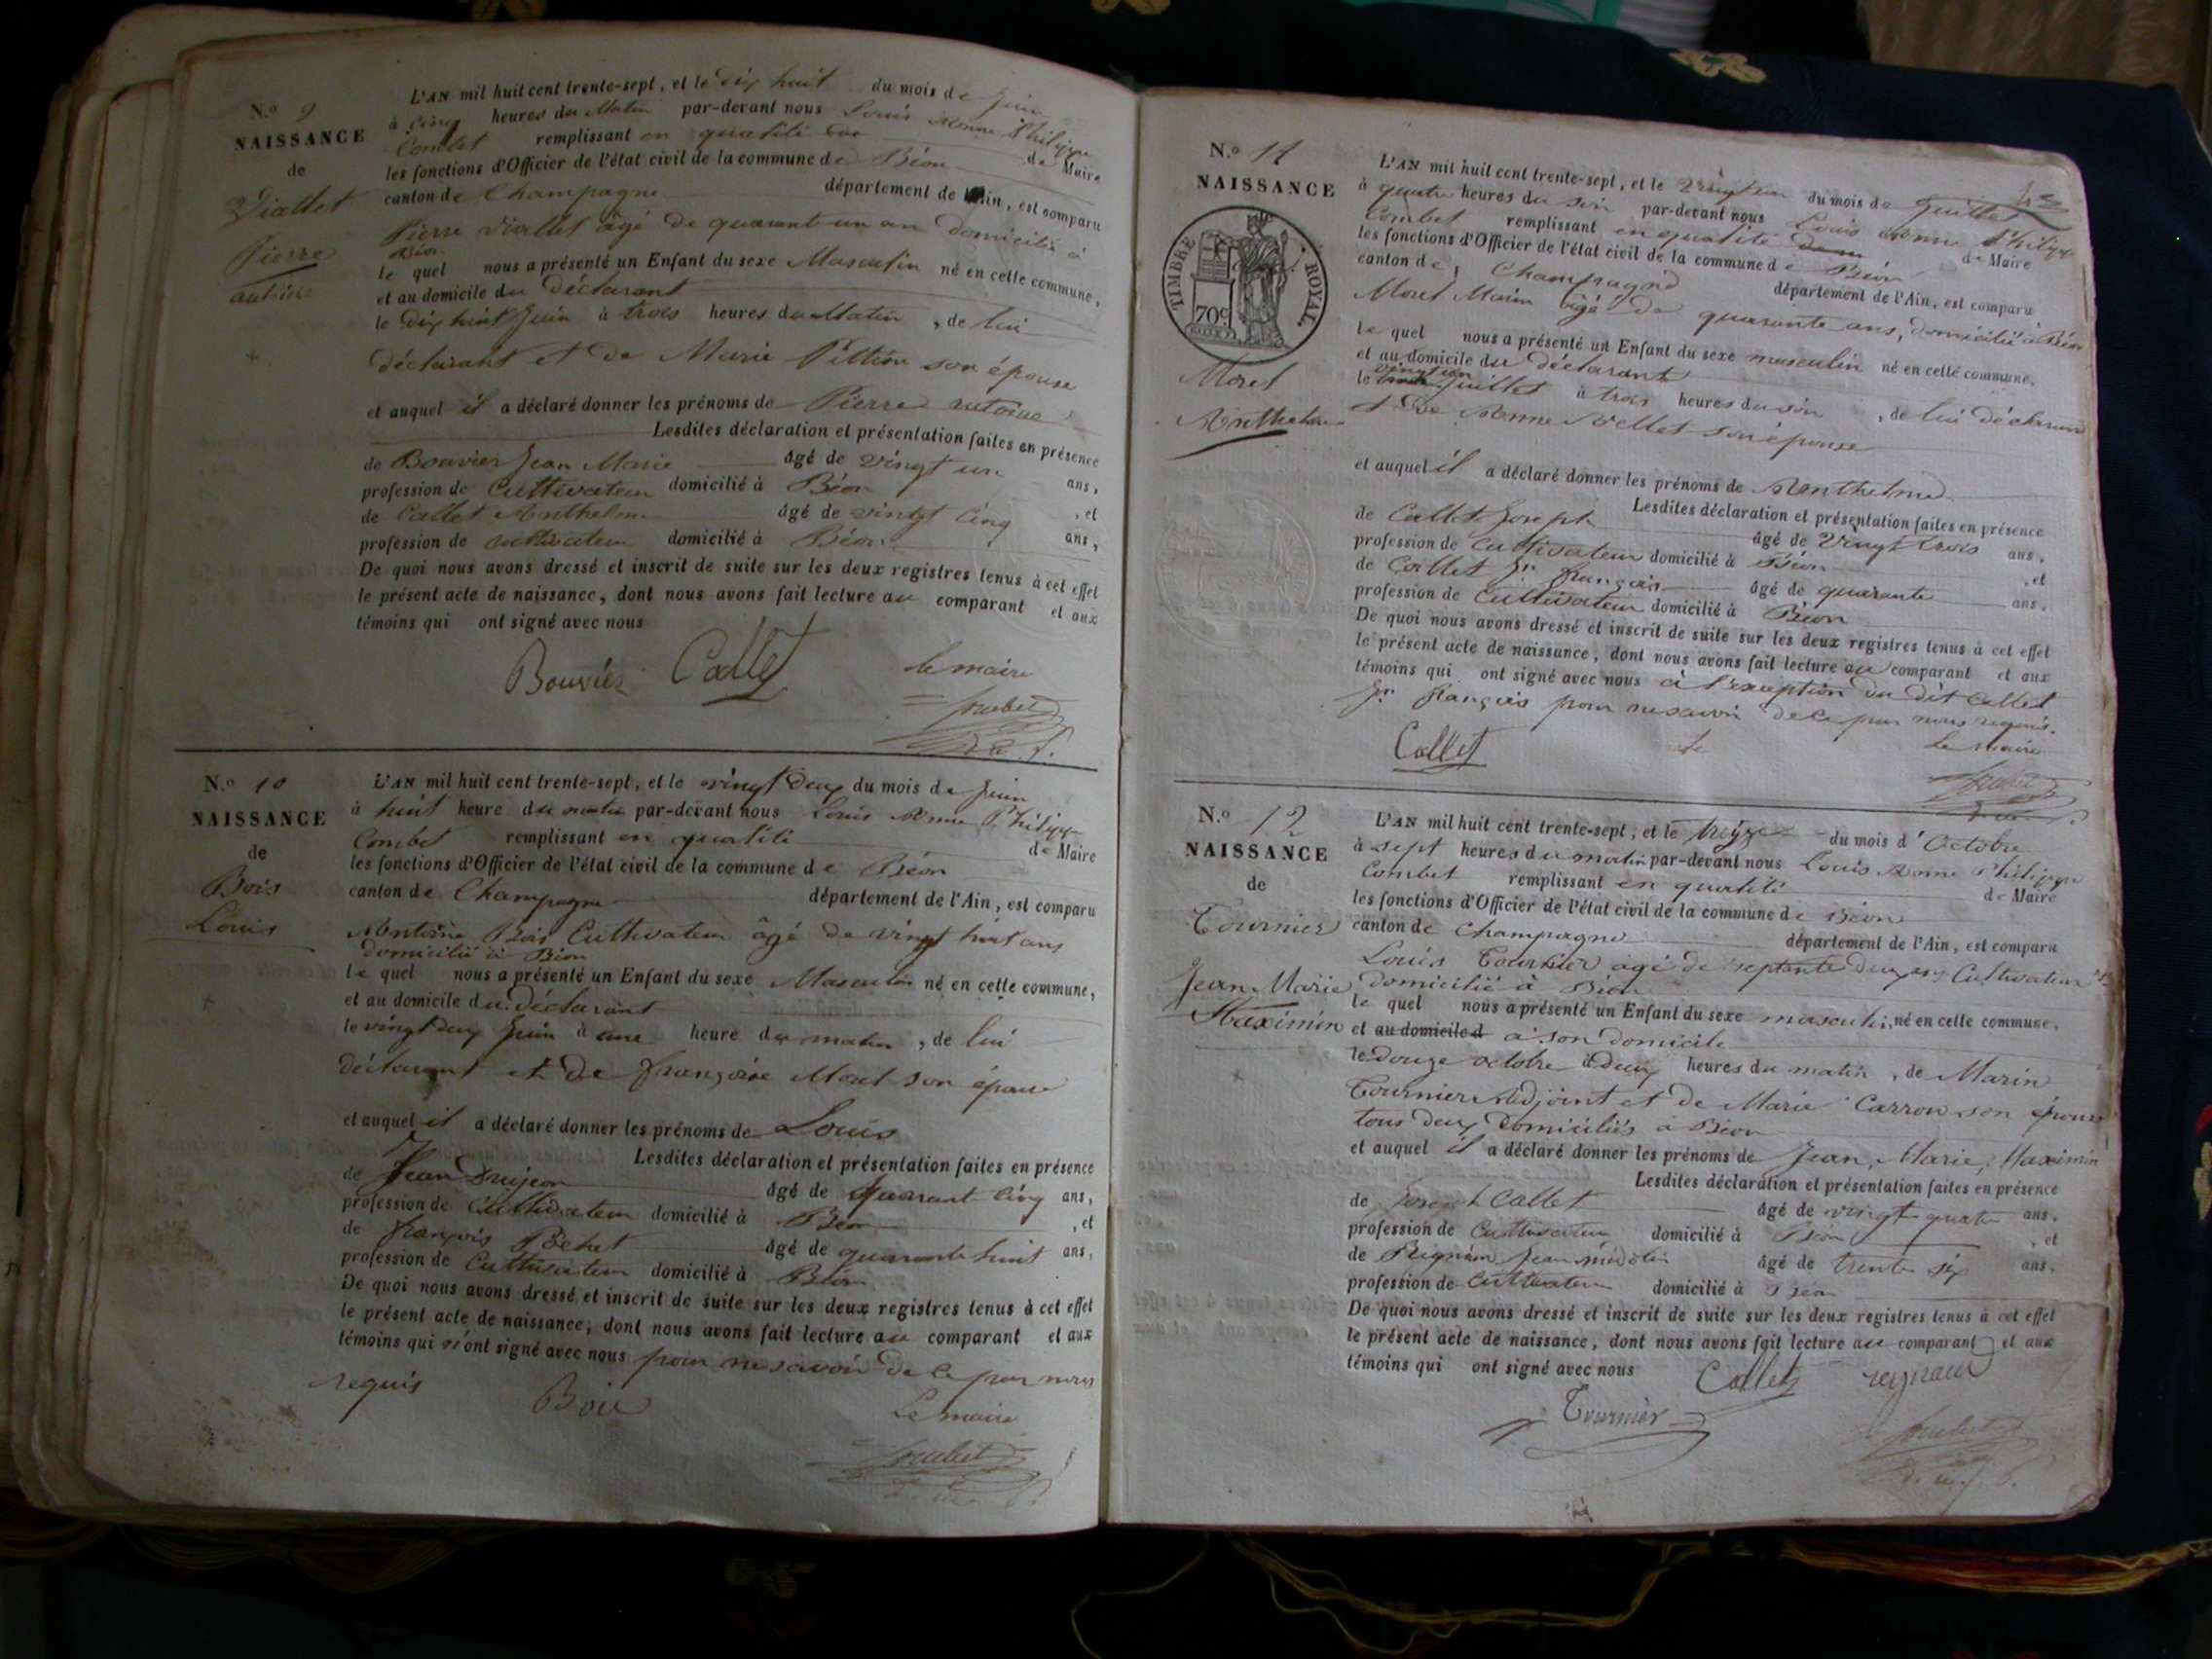 N.o 9
NAISSANCE
de
Viallet
Pierre
antoine
L'AN mil huit cent trente-sept, et le dix huit du mois de Juin
à cinq heures du Matin par-devant nous Louis Philippe
Combet remplissant en qualité de Maire
les fonctions d'Officier de l'état civil de la commune de Béon
canton de Champagne département de l'Ain, est comparu
Pierre Viallet âgé de quarante un an domicilié à
Béon
le quel nous a présenté un Enfant du sexe Masculin né en cette commune,
et au domicile du Déclarant
le dix huit Juin à trois heures du Matin, de lui
déclarant et de Marie Pittion son épouse
et auquel il a déclaré donner les prénoms de Pierre antoine
Lesdites déclaration et présentation faites en présence
de Bouvier Jean Marie âgé de vingt un ans,
profession de Cultivateur domicilié à Béon, et
de Callet Anthelme âgé de vingt cinq ans,
profession de cultivateur domicilié à Béon
De quoi nous avons dressé et inscrit de suite sur les deux registres tenus à cet effet
le présent acte de naissance, dont nous avons fait lecture au comparant et aux
témoins qui ont signé avec nous
Bouvier Callet le maire
N.o 10
NAISSANCE
de
Bois
Louis
L'AN mil huit cent trente-sept, et le vingt deux du mois de Juin
à huit heure du matin par-devant nous Louis Philippe
Combet remplissant en qualité de Maire
les fonctions d'Officier de l'état civil de la commune de Béon
canton de Champagne département de l'Ain, est comparu
Antoine Bois Cultivateur âgé de vingt huit ans
domicilié à Béon
le quel nous a présenté un Enfant du sexe Masculin né en cette commune,
et au domicile du Déclarant
le vingt deux Juin à une heure du matin, de lui
déclarant et de françoise Morel son épouse
et auquel il a déclaré donner les prénoms de Louis
Lesdites déclaration et présentation faites en présence
de Jean Drujeon âgé de quarant cinq ans,
profession de Cultivateur domicilié à Béon, et
de françois Pochet âgé de quarante huit ans,
profession de Cultivateur domicilié à Béon
De quoi nous avons dressé et inscrit de suite sur les deux registres tenus à cet effet
le présent acte de naissance, dont nous avons fait lecture au comparant et aux
témoins qui n'ont signé avec nous pour ne savoir de ce par nous
requis Bois Le maire
N.o 11
NAISSANCE
TIMBRE ROYAL
70c
Morel
Anthelme
L'AN mil huit cent trente-sept, et le vingt un du mois de Juillet
à quatre heures du soir par-devant nous Louis Philippe
Combet remplissant en qualité de Maire
les fonctions d'Officier de l'état civil de la commune de Béon
canton de Champagne département de l'Ain, est comparu
Morel Marin âgé de quarante ans, domicilié à Béon
le quel nous a présenté un Enfant du sexe masculin né en cette commune,
et au domicile du déclarant
vingt un
le Juillet à trois heures du soir, de lui déclarant
et de son épouse
et auquel il a déclaré donner les prénoms de Anthelme
Lesdites déclaration et présentation faites en présence
de Callet Joseph âgé de vingt trois ans,
profession de Cultivateur domicilié à Béon, et
de Callet Jn françois âgé de quarante ans,
profession de Cultivateur domicilié à Béon
De quoi nous avons dressé et inscrit de suite sur les deux registres tenus à cet effet
le présent acte de naissance, dont nous avons fait lecture au comparant et aux
témoins qui ont signé avec nous à l'exception du dit Callet
Jn françois pour ne savoir de ce par nous requis.
Callet Le maire
N.o 12
NAISSANCE
de
Tournier
Jean Marie
Maximin
L'AN mil huit cent trente-sept, et le treize du mois d'Octobre
à sept heures du matin par-devant nous Louis Philippe
Combet remplissant en qualité de Maire
les fonctions d'Officier de l'état civil de la commune de Béon
canton de Champagne département de l'Ain, est comparu
Louis Tournier âgé de septante deux ans Cultivateur
domicilié à Béon
le quel nous a présenté un Enfant du sexe masculin, né en cette commune,
et au domicile d à son domicile
le douze octobre à deux heures du matin, de Marin
Tournier Adjoint et de Marie Carron son épouse
tous deux domiciliés à Béon
et auquel il a déclaré donner les prénoms de Jean, Marie, Maximin
Lesdites déclaration et présentation faites en présence
de Joseph Callet âgé de vingt quatre ans,
profession de Cultivateur domicilié à Béon, et
de Jean âgé de trente six ans,
profession de Cultivateur domicilié à Béon
De quoi nous avons dressé et inscrit de suite sur les deux registres tenus à cet effet
le présent acte de naissance, dont nous avons fait lecture au comparant et aux
témoins qui ont signé avec nous Callet
Tournier